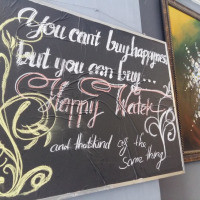 You can't buy happyness
but you can buy...
Happy Water
and that kind of the
same thing